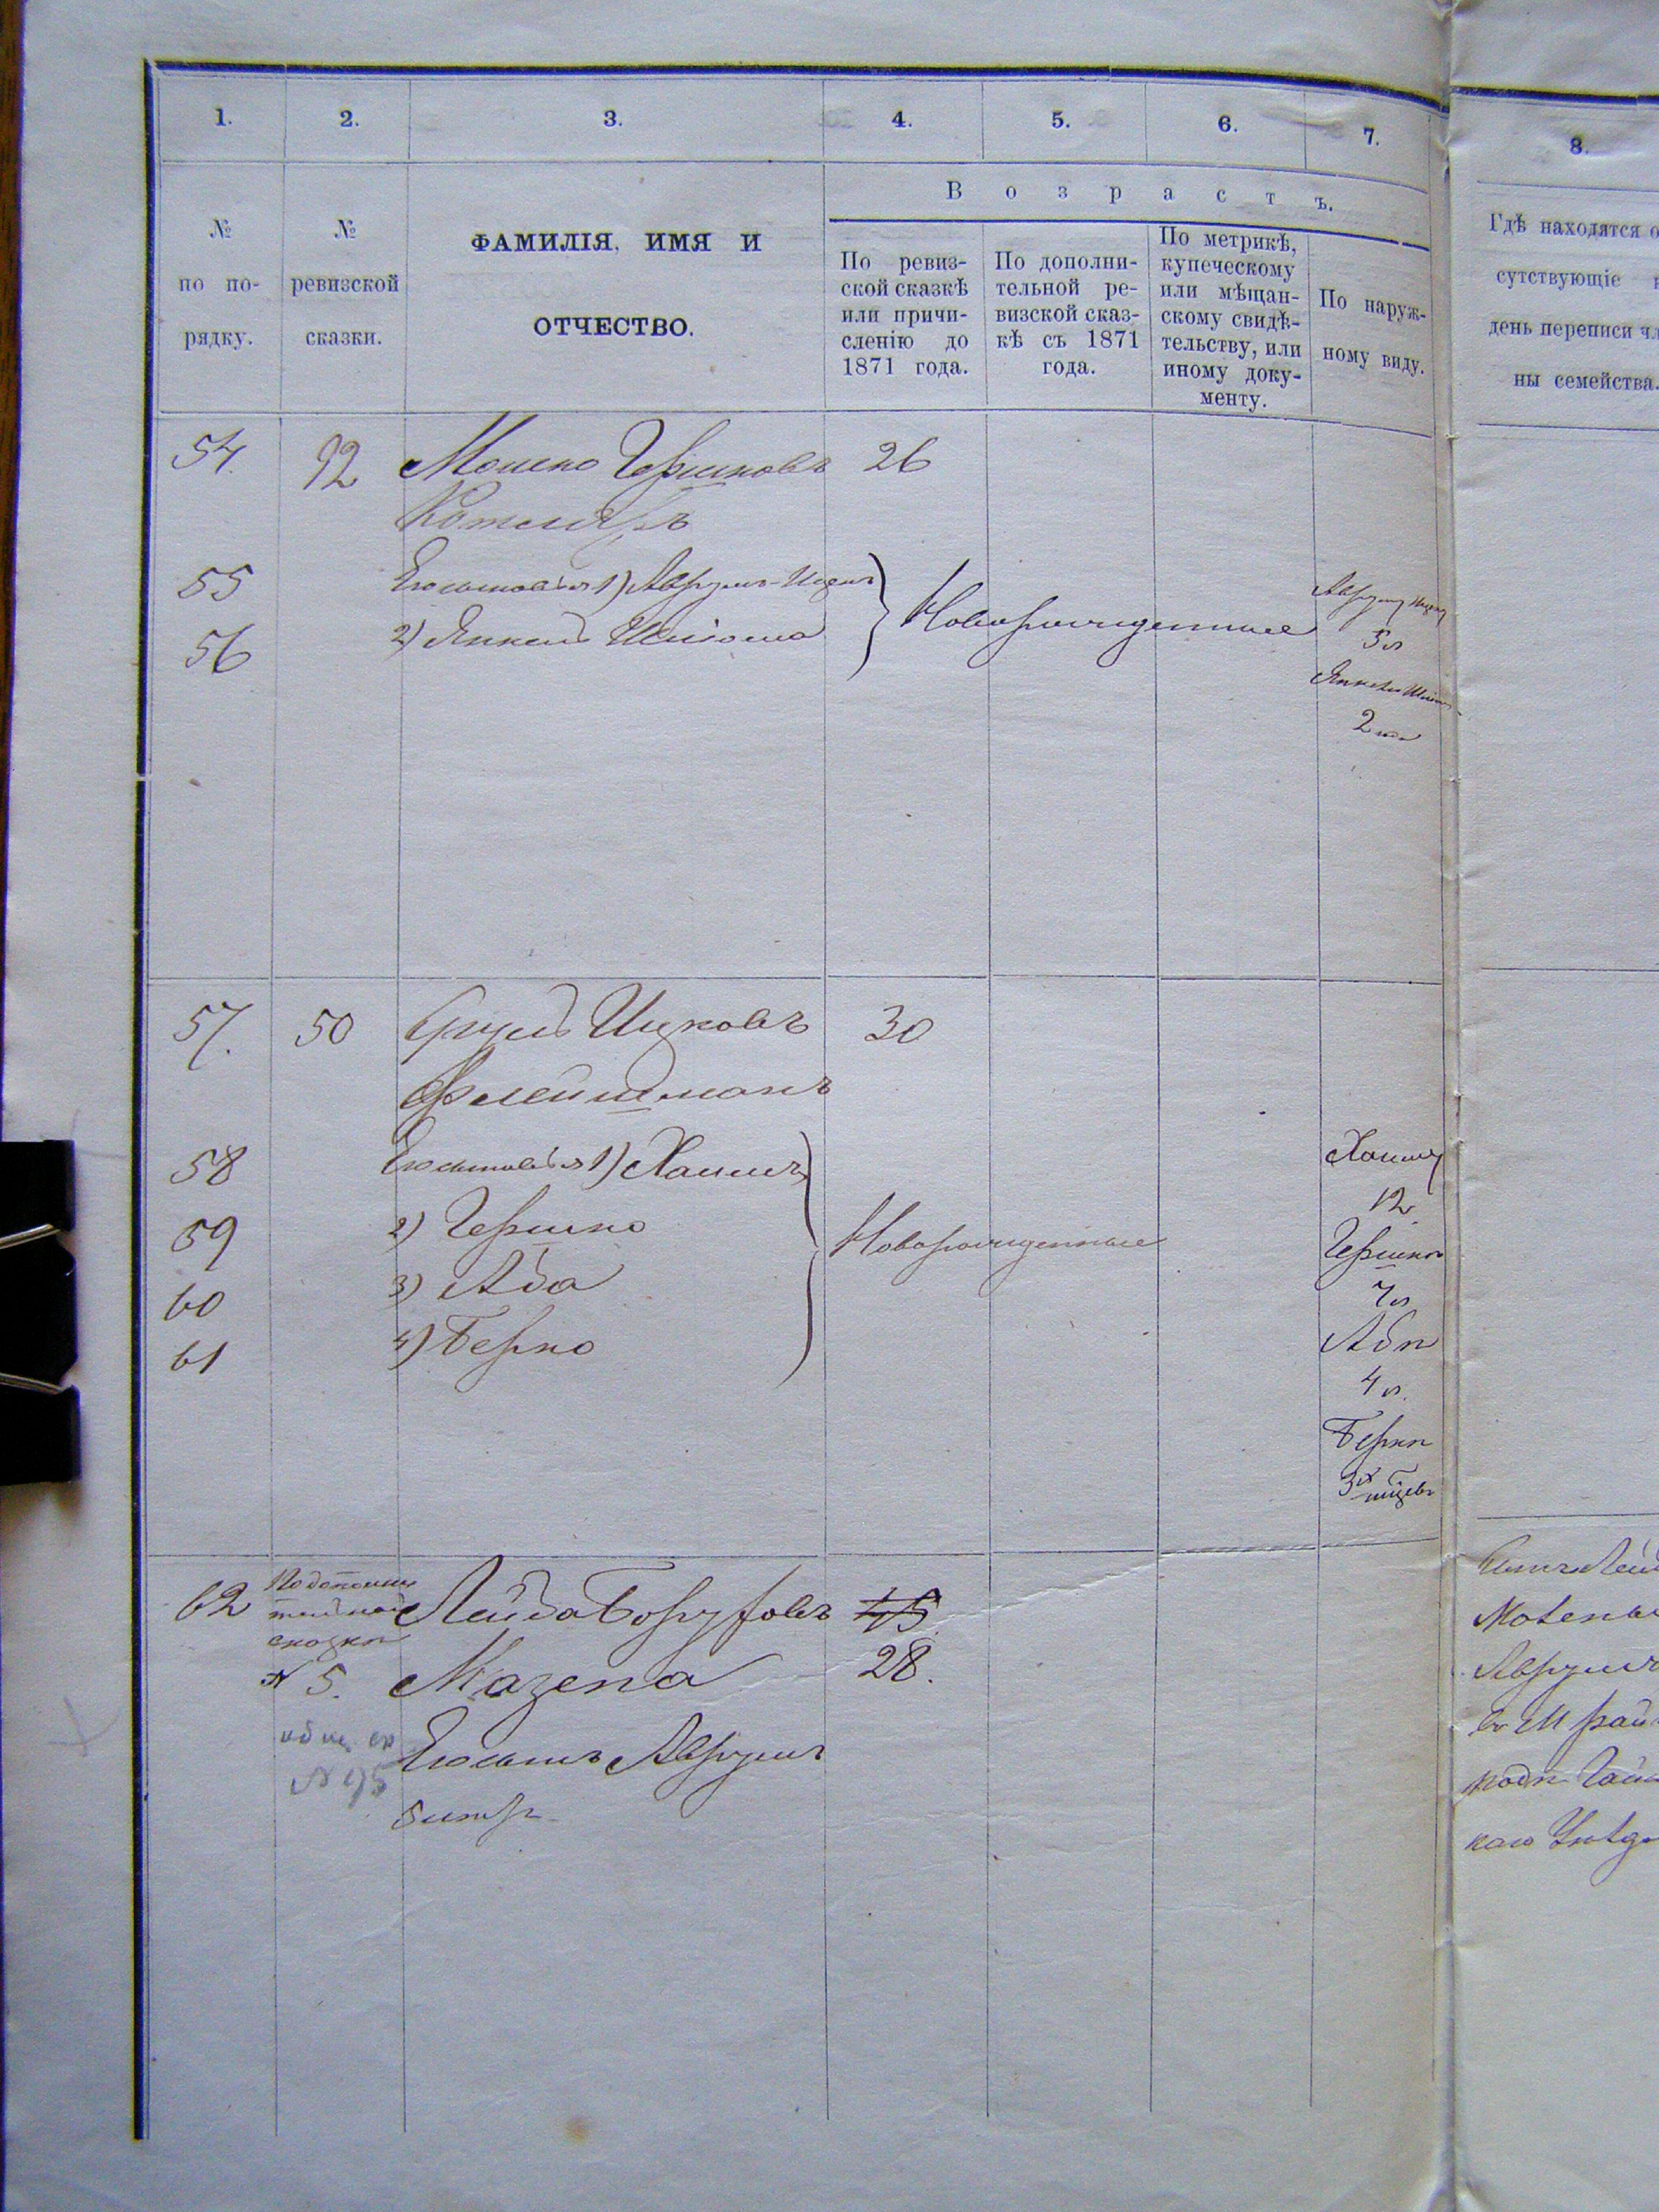 1. 2. 3. 4. 5. 6. 7. 8.
№
по по-
рядку.
№
ревизской
сказки.
ФАМИЛІЯ, ИМЯ И
ОТЧЕСТВО.
Возрастъ.
По ревиз-
ской сказкѣ
или причи-
сленію до
1871 года.
По дополни-
тельной ре-
визской сказ-
кѣ съ 1871
года.
По метрикѣ,
купеческому
или мѣщан-
скому свидѣ-
тельству, или
иному доку-
менту.
По наруж-
ному виду.
Гдѣ находятся о
сутствующіе
день переписи чл
ны семейства.
54. 92 Мошко Гершковъ 26
Котляръ
55 Его сыновья 1) Аврумъ-Ицекъ
56 2) Янкель Шліома
Новорожденные
5 л
2
57. 50 Сруль Ицковъ 30
Флейшманъ
58 Его сыновья 1) Хаимъ
59 2) Гершко
60 3) Аба
61 4) Берко
Новорожденные
Хаиму
12
Гершку
7 л
Абѣ
4 л.
Беркѣ
3
62 По дополни-
тельной
сказкѣ
№ 5.
Лейба Боруховъ 45
Мазепа 28.
Его сынъ Аврумъ